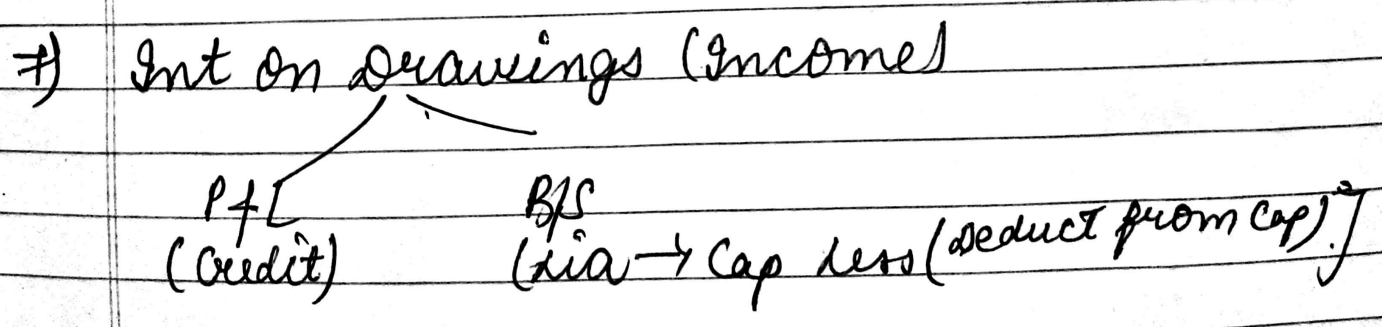 7) Int on Drawings (Income)
P & L B/S
(Credit) (Lia → Cap less (Deduct from Cap).]